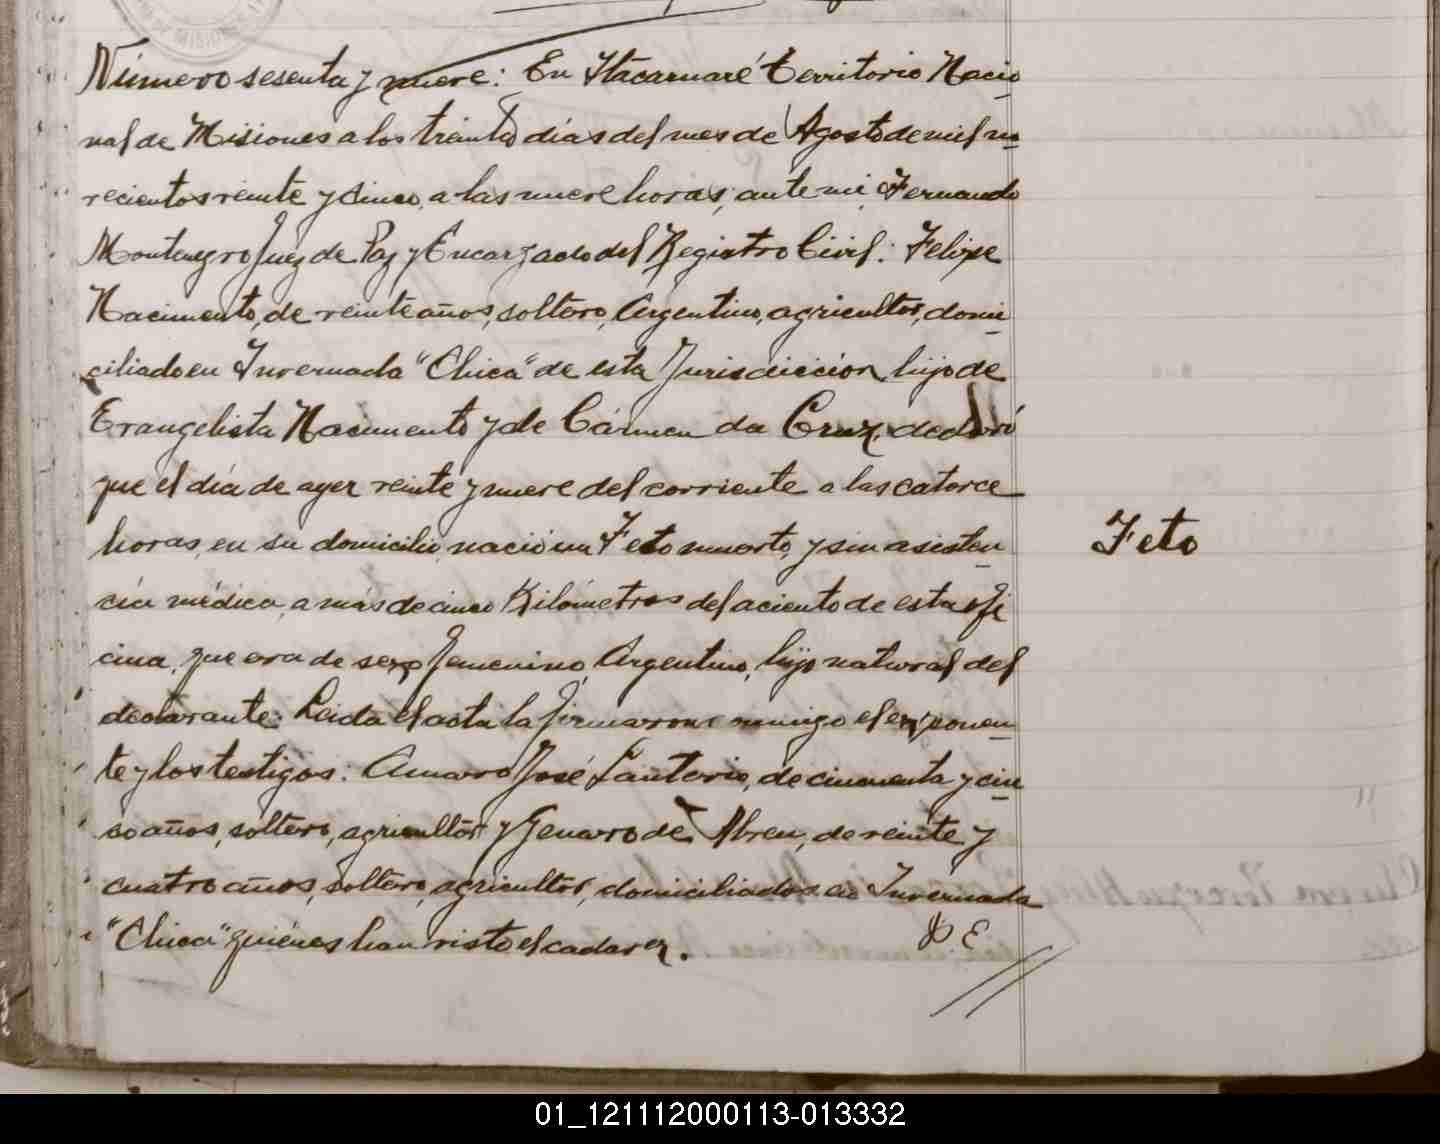 Número sesenta y nueve: En Itacaruaré Territorio Nacio
nal de Misiones a los treinta días del mes de Agosto de mil no
vecientos veinte y cinco, a las nueve horas, ante mi, Fernando
Montenegro Juez de Paz y Encargado del Registro Civil: Felipe
Nacimento, de veinte años, soltero, Argentino, agricultor, domi
ciliado en Invernada "Chica" de esta Jurisdicción, hijo de
Evangelista Nacimento y de Cármen da Cruz, declaró
que el día de ayer veinte y nueve del corriente a las catorce
horas, en su domicilio, nació un Feto muerto, y sin asisten
cia médica, a más de cinco Kilómetros del aciento de esta ofi
cina, que era de sexo femenino, Argentino, hijo natural del
declarante: Leida el acta la firmaron conmigo el exponen
te y los testigos: Amaro José Lautorio, de cincuenta y cin
co años, soltero, agricultor y Genaro de Abreu, de veinte y
cuatro años, soltero, agricultor, domiciliados en Invernada
"Chica" quiénes han visto el cadaver.
Feto
01_121112000113-013332